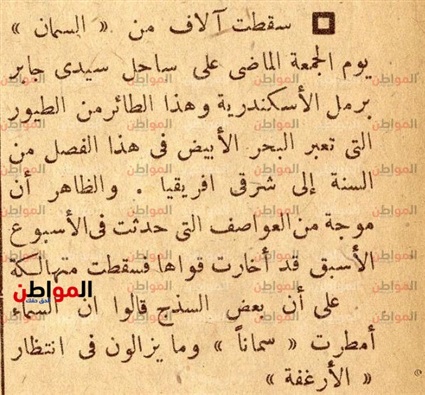 سقطت آلاف من « السمان »
يوم الجمعة الماضى على ساحل سيدى جابر
برمل الأسكندرية وهذا الطائر من الطيور
التى تعبر البحر الأبيض فى هذا الفصل من
السنة إلى شرقى افريقيا . والظاهر أن
موجة من العواصف التى حدثت فى الأسبوع
الأسبق قد أخارت قواها فسقطت متهالكة
على أن بعض السذج قالوا ان السماء
أمطرت « سماناً » وما يزالون فى انتظار
« الأرغفة »
المواطن